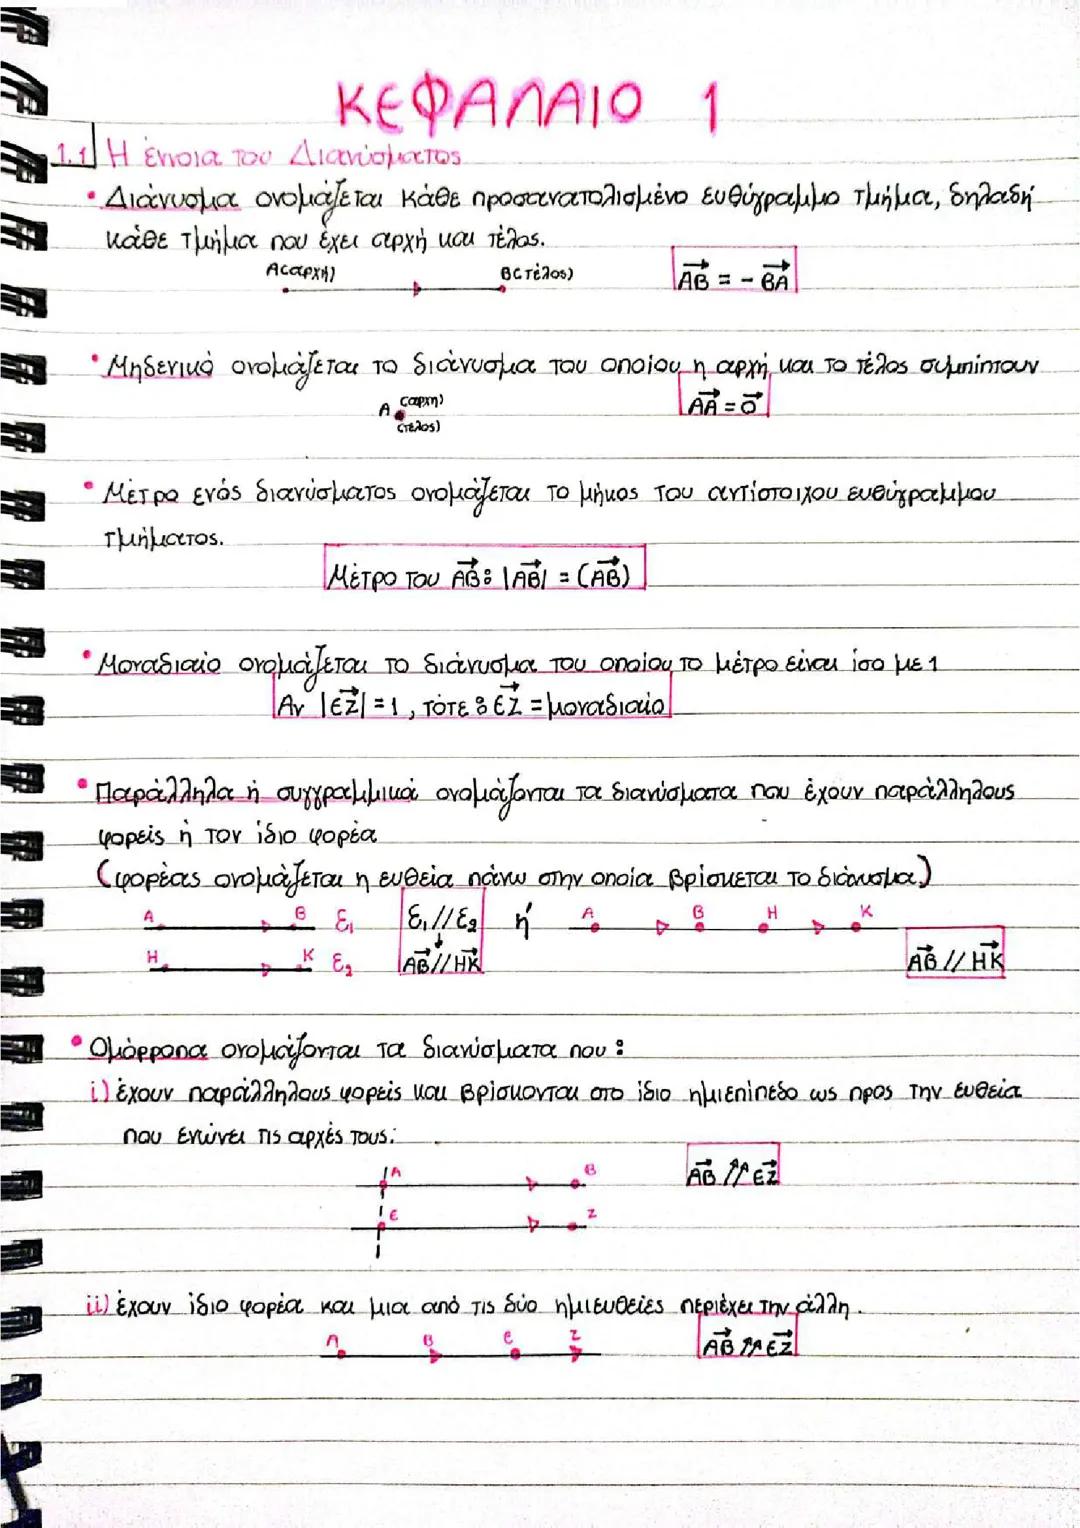 ΚΕΦΑΛΑΙΟ 1
1.1 Η έννοια του Διανύσματος
• Διάνυσμα ονομάζεται κάθε προσανατολισμένο ευθύγραμμο τμήμα, δηλαδή
κάθε τμήμα που έχει αρχή και τέλος.
Α(αρχή) Β(τέλος) ΑΒ = - ΒΑ
• Μηδενικό ονομάζεται το διάνυσμα του οποίου η αρχή και το τέλος συμπίπτουν
Α (αρχη) (τέλος) ΑΑ = 0
• Μέτρο ενός διανύσματος ονομάζεται το μήκος του αντίστοιχου ευθύγραμμου
τμήματος.
Μέτρο του ΑΒ: |ΑΒ| = (ΑΒ)
• Μοναδιαίο ονομάζεται το διάνυσμα του οποίου το μέτρο είναι ίσο με 1
Αν |ΕΖ| = 1, τότε: ΕΖ = μοναδιαίο
• Παράλληλα ή συγγραμμικά ονομάζονται τα διανύσματα που έχουν παράλληλους
φορείς ή τον ίδιο φορέα
(φορέας ονομάζεται η ευθεία πάνω στην οποία βρίσκεται το διάνυσμα.)
Α Β ε₁ ε₁//ε₂ ή Α Β Η Κ
Η Κ ε₂ ΑΒ//ΗΚ ΑΒ // ΗΚ
• Ομόρροπα ονομάζονται τα διανύσματα που:
i) έχουν παράλληλους φορείς και βρίσκονται στο ίδιο ημιεπίπεδο ως προς την ευθεία
που ενώνει τις αρχές τους:
Α Β ΑΒ ↑↑ ΕΖ
Ε Ζ
ii) έχουν ίδιο φορέα και μια από τις δύο ημιευθείες περιέχει την άλλη.
Α Β Ε Ζ ΑΒ ↑↑ ΕΖ